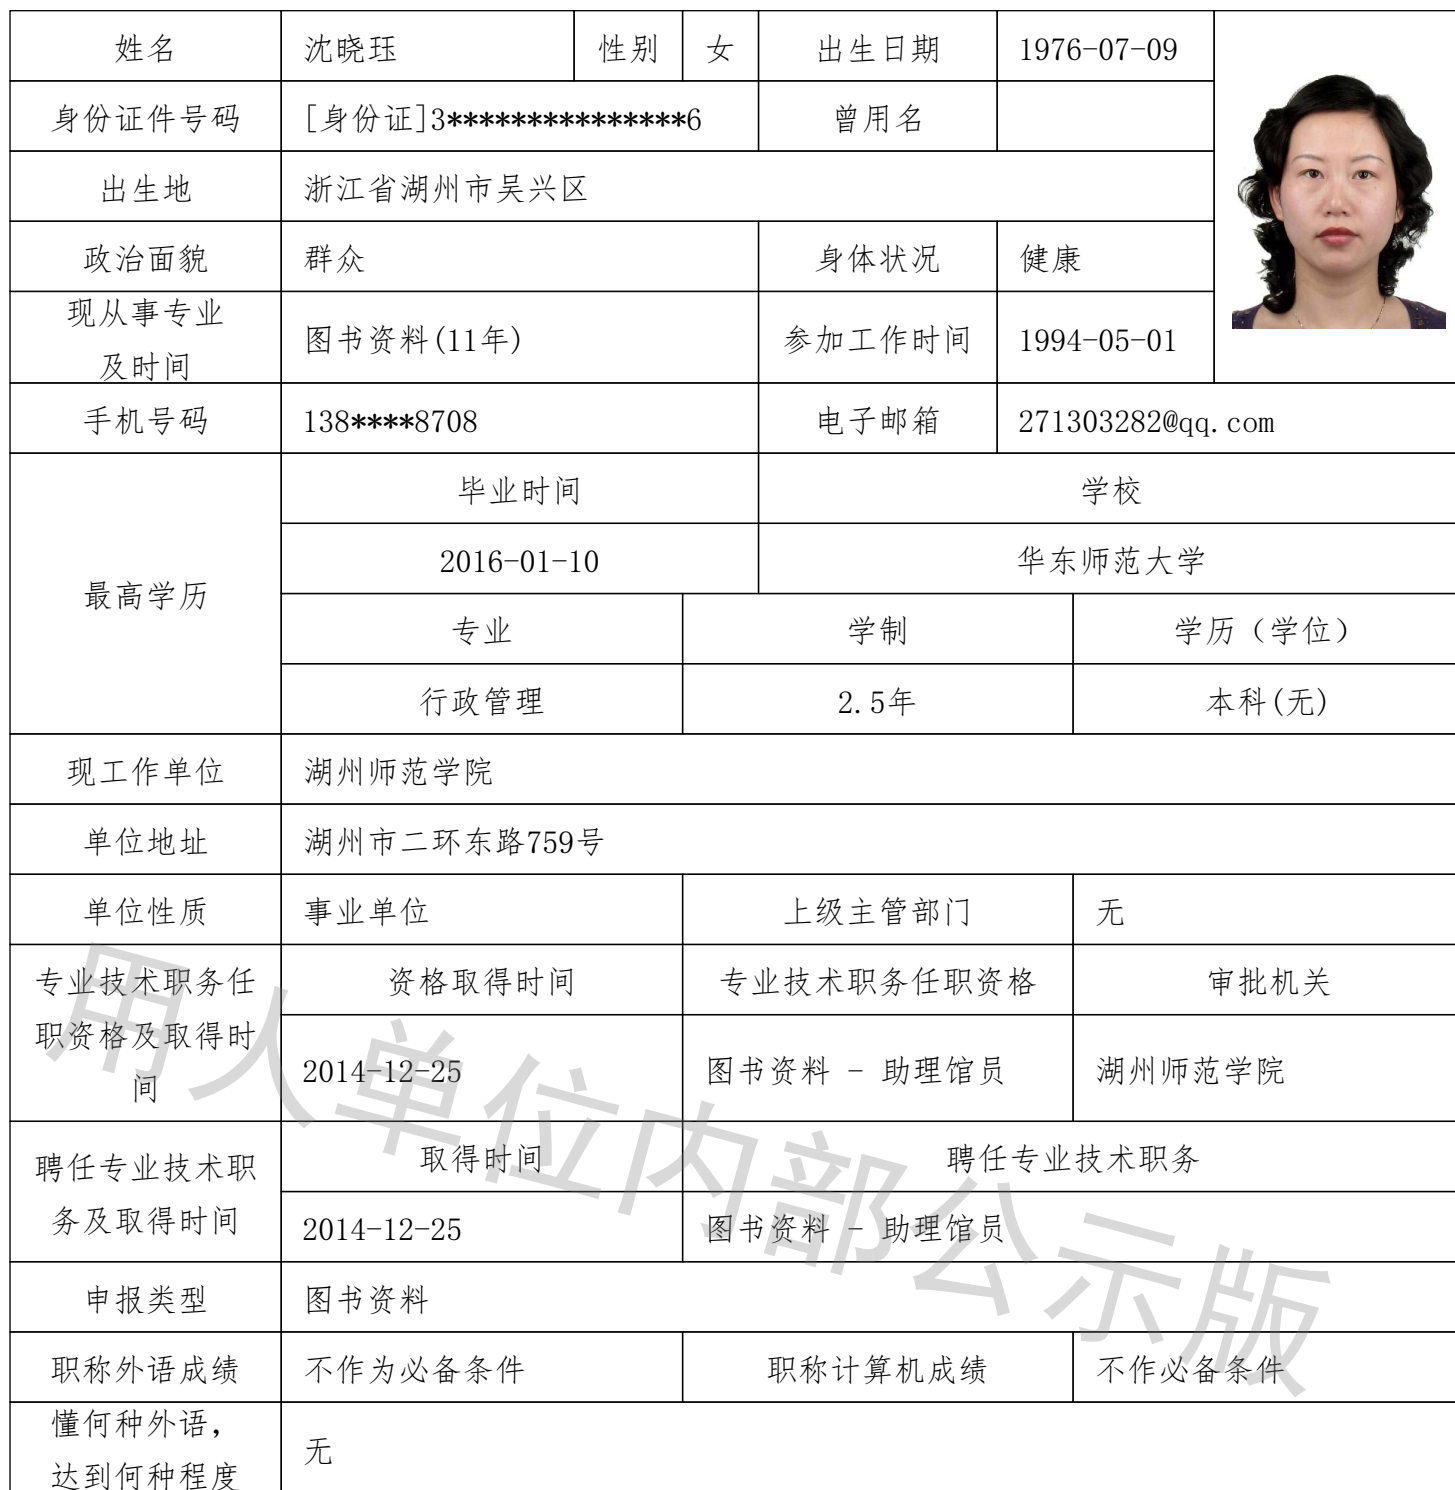 姓名 沈晓珏 性别 女 出生日期 1976-07-09
身份证件号码 [身份证]3***************6 曾用名
出生地 浙江省湖州市吴兴区
政治面貌 群众 身体状况 健康
现从事专业
及时间 图书资料(11年) 参加工作时间 1994-05-01
手机号码 138****8708 电子邮箱 271303282@qq.com
最高学历
毕业时间 学校
2016-01-10 华东师范大学
专业 学制 学历（学位）
行政管理 2.5年 本科(无)
现工作单位 湖州师范学院
单位地址 湖州市二环东路759号
单位性质 事业单位 上级主管部门 无
专业技术职务任
职资格及取得时
间
资格取得时间 专业技术职务任职资格 审批机关
2014-12-25 图书资料 - 助理馆员 湖州师范学院
聘任专业技术职
务及取得时间
取得时间 聘任专业技术职务
2014-12-25 图书资料 - 助理馆员
申报类型 图书资料
职称外语成绩 不作为必备条件 职称计算机成绩 不作必备条件
懂何种外语，
达到何种程度 无
用人单位内部公示版